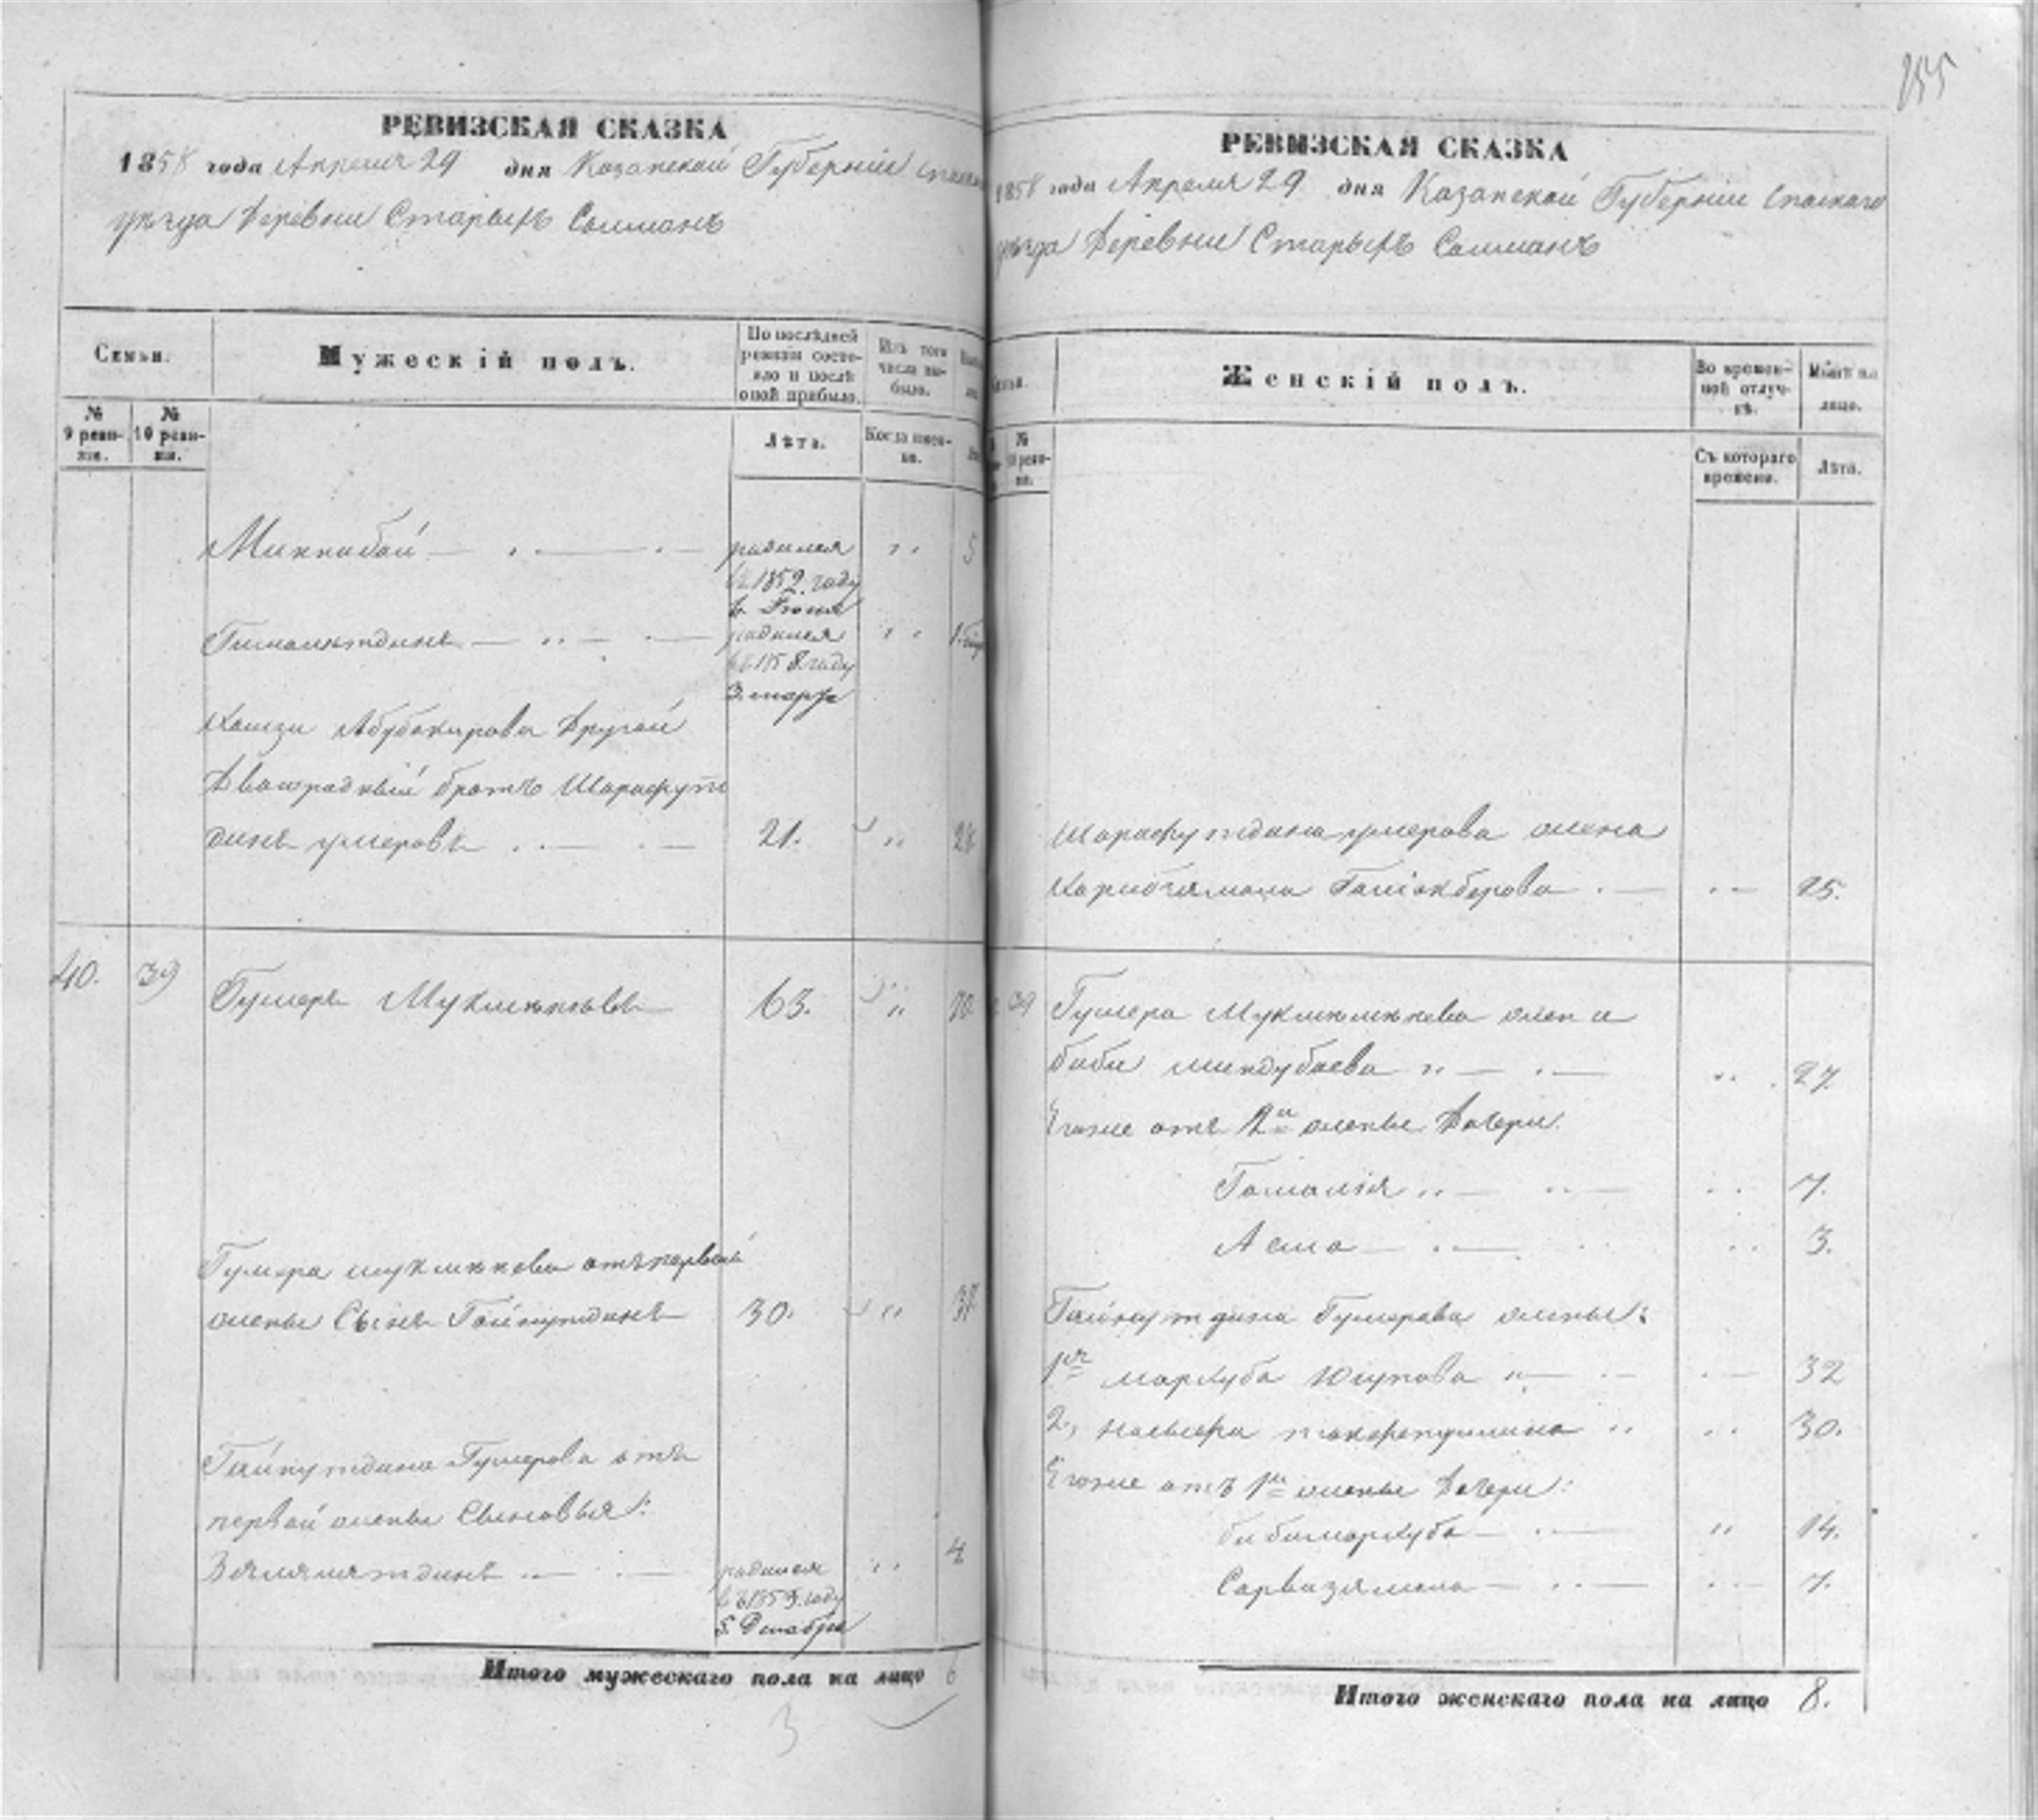 155
РЕВИЗСКАЯ СКАЗКА
1858 года Апреля 29 дня Казанской Губерніи Спаскаго
уѣзда Деревни Старыхъ Салманъ
Семьи.
Мужескій полъ.
По послѣдней ревизіи состояло и послѣ оной прибыло.
Изъ того числа выбыло.
№ 9 ревизіи.
№ 10 ревизіи.
Лѣта.
Когда именно.
Миннибай родился 5
въ 1852 году
в Іюня
родился
въ 1858 году
3 марта
Хамзи Абубакирова другой
двоюродный братъ Шарафут
динъ умеровъ 21. 28
40. 39 Гумеръ 63. 70
Гумера от первой
жены Сынъ Гайнутдинъ 30. 37
Гайнутдина Гумерова отъ
первой жены Сыновья:
Зялялятдинъ родился 4
въ 1853 году
5. Декабря
Итого мужескаго пола на лицо 6
3
РЕВИЗСКАЯ СКАЗКА
1858 года Апреля 29 дня Казанской Губерніи Спаскаго
уѣзда Деревни Старыхъ Салманъ
Женскій полъ.
Во временной отлучкѣ.
лицо.
№ 10 ревизіи.
Съ котораго времени.
Лѣта.
Шарафутдина умерова жена
Галіакберова 25.
39 Гумера жена
биби миндубаева 27.
Егоже отъ 2й жены дочери
Гамалія 7.
Асма 3.
Гайнутдина Гумерова жены:
1я мархуба Юсупова 32
2, 30.
Егоже отъ 1й жены дочери:
бибимархуба 14.
Сарвизямала 7.
Итого женскаго пола на лицо 8.